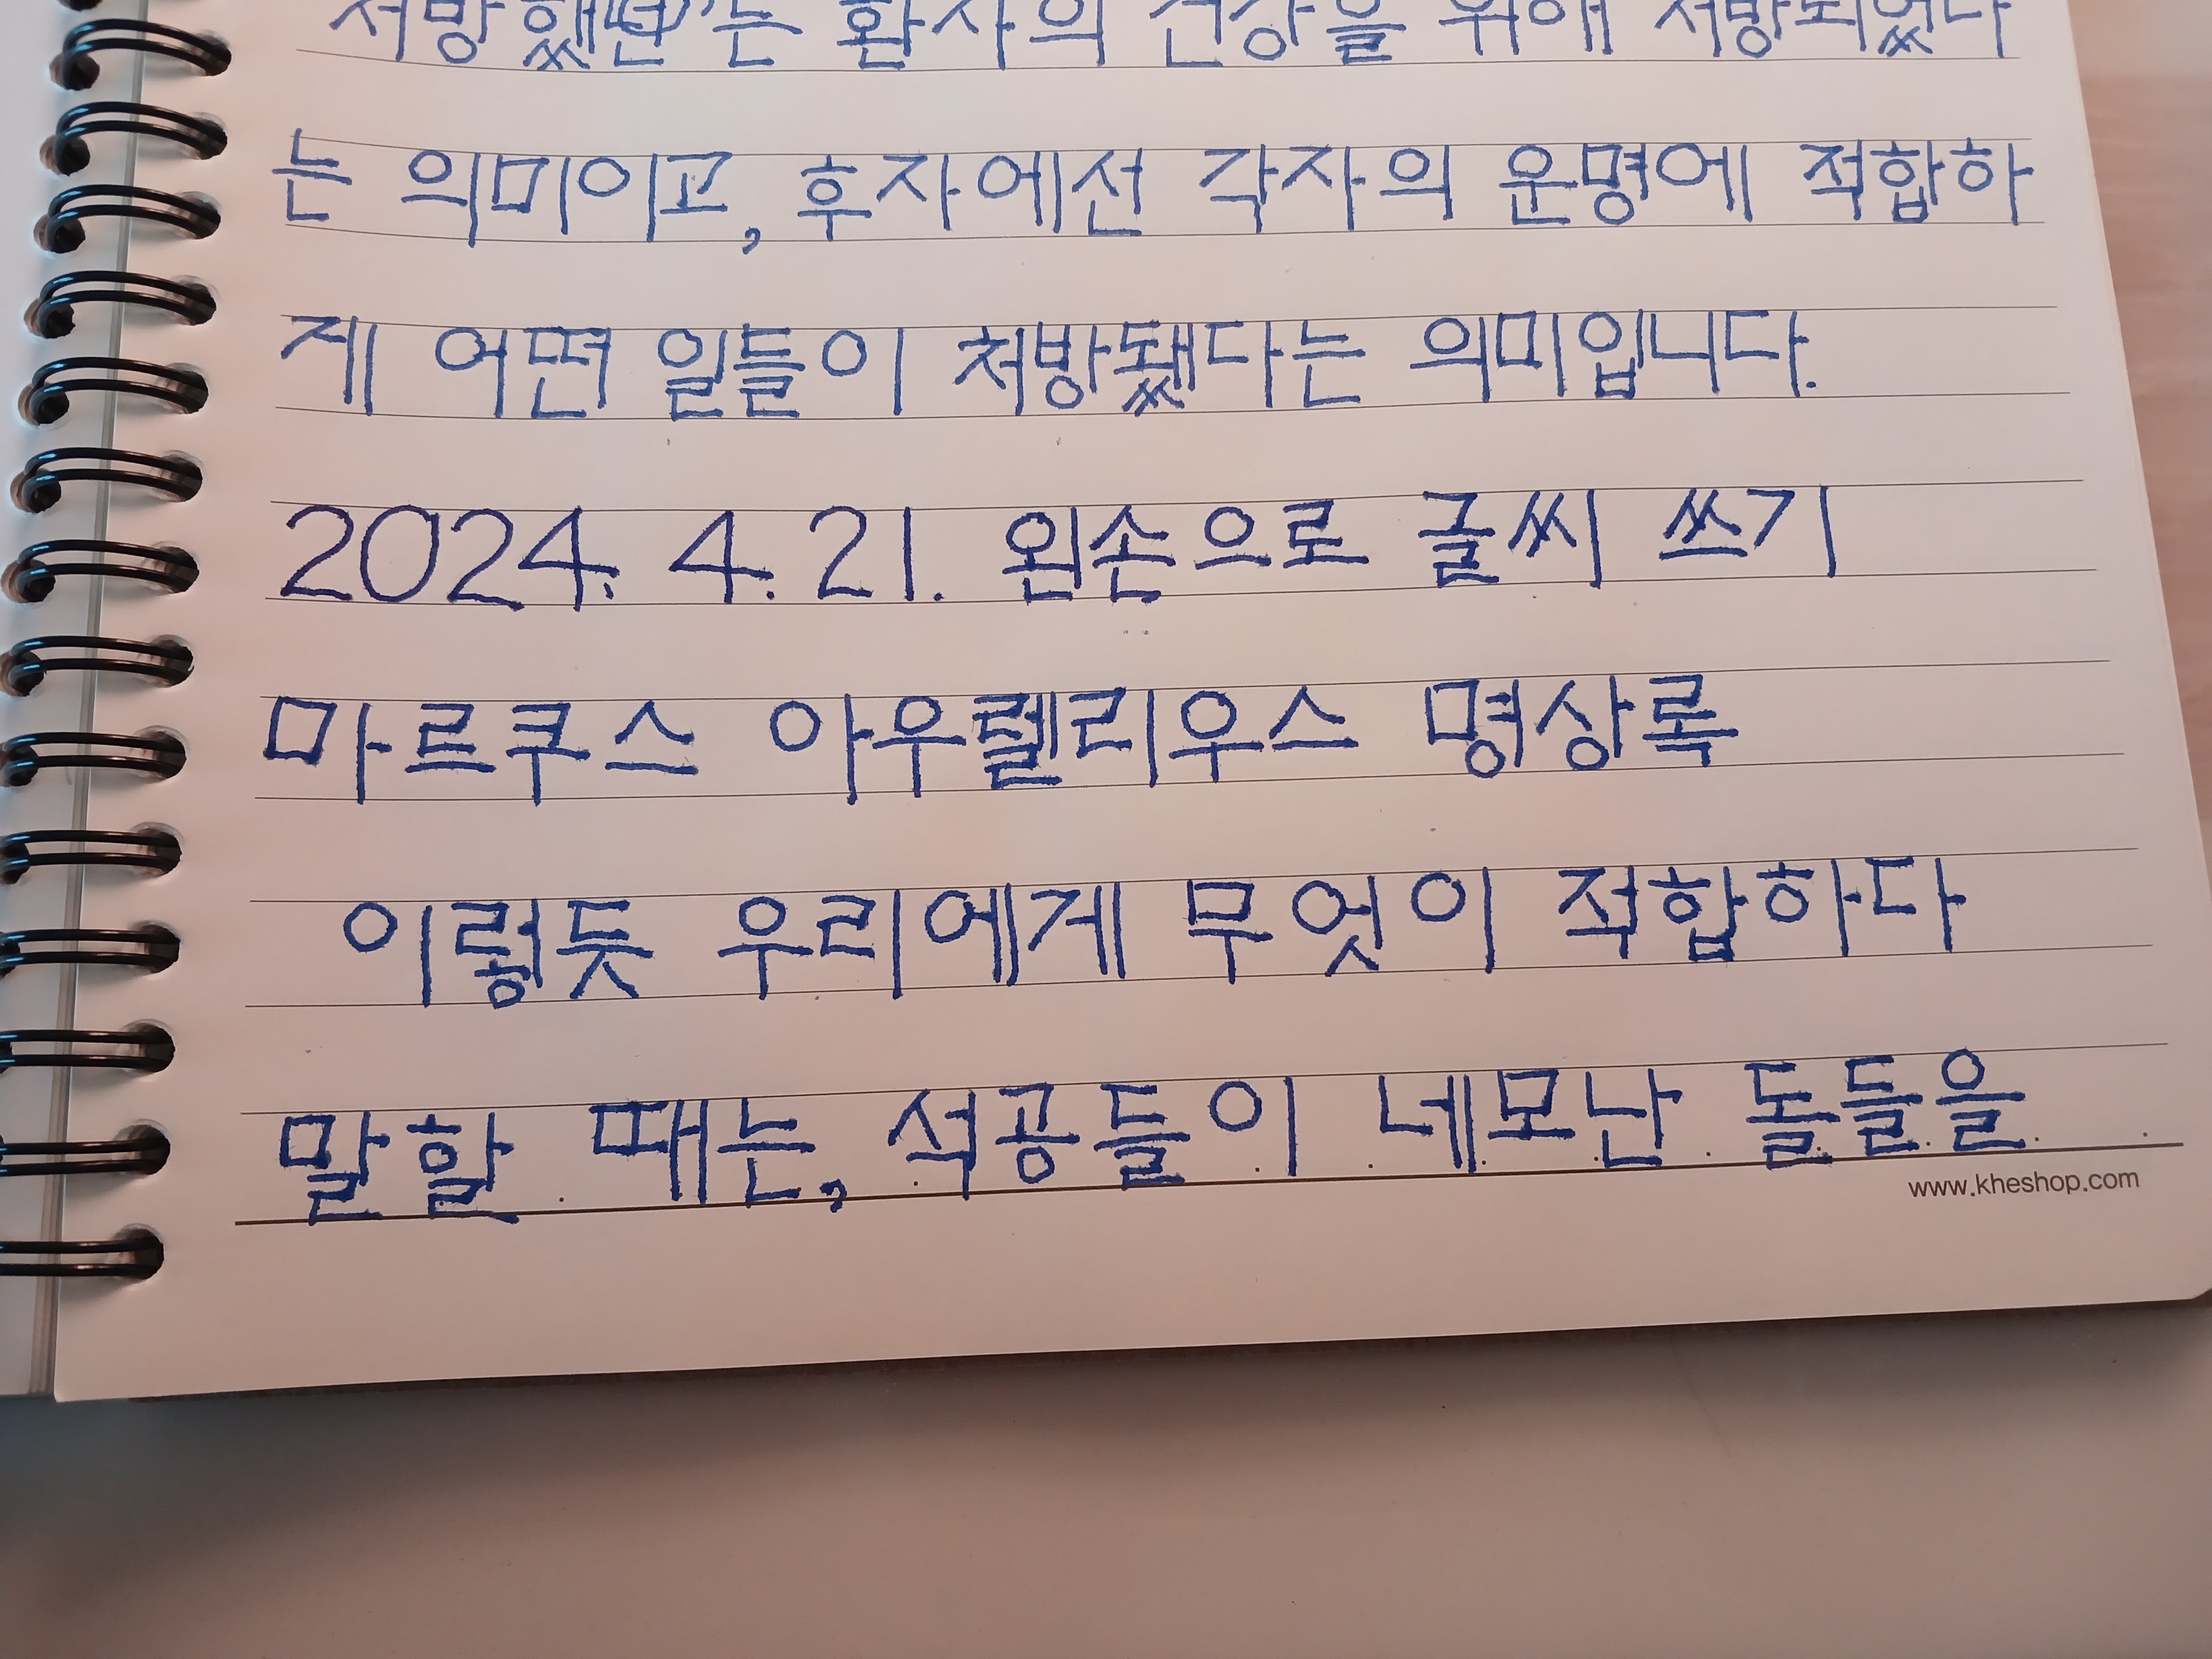 는 환자의 건강을 위해 처방되었다
는 의미이고, 후자에선 각자의 운명에 적합하
게 어떤 일들이 처방됐다는 의미입니다.
2024. 4. 21. 왼손으로 글씨 쓰기
마르쿠스 아우렐리우스 명상록
이렇듯 우리에게 무엇이 적합하다
말할 때는, 석공들이 네모난 돌들을
www.kheshop.com